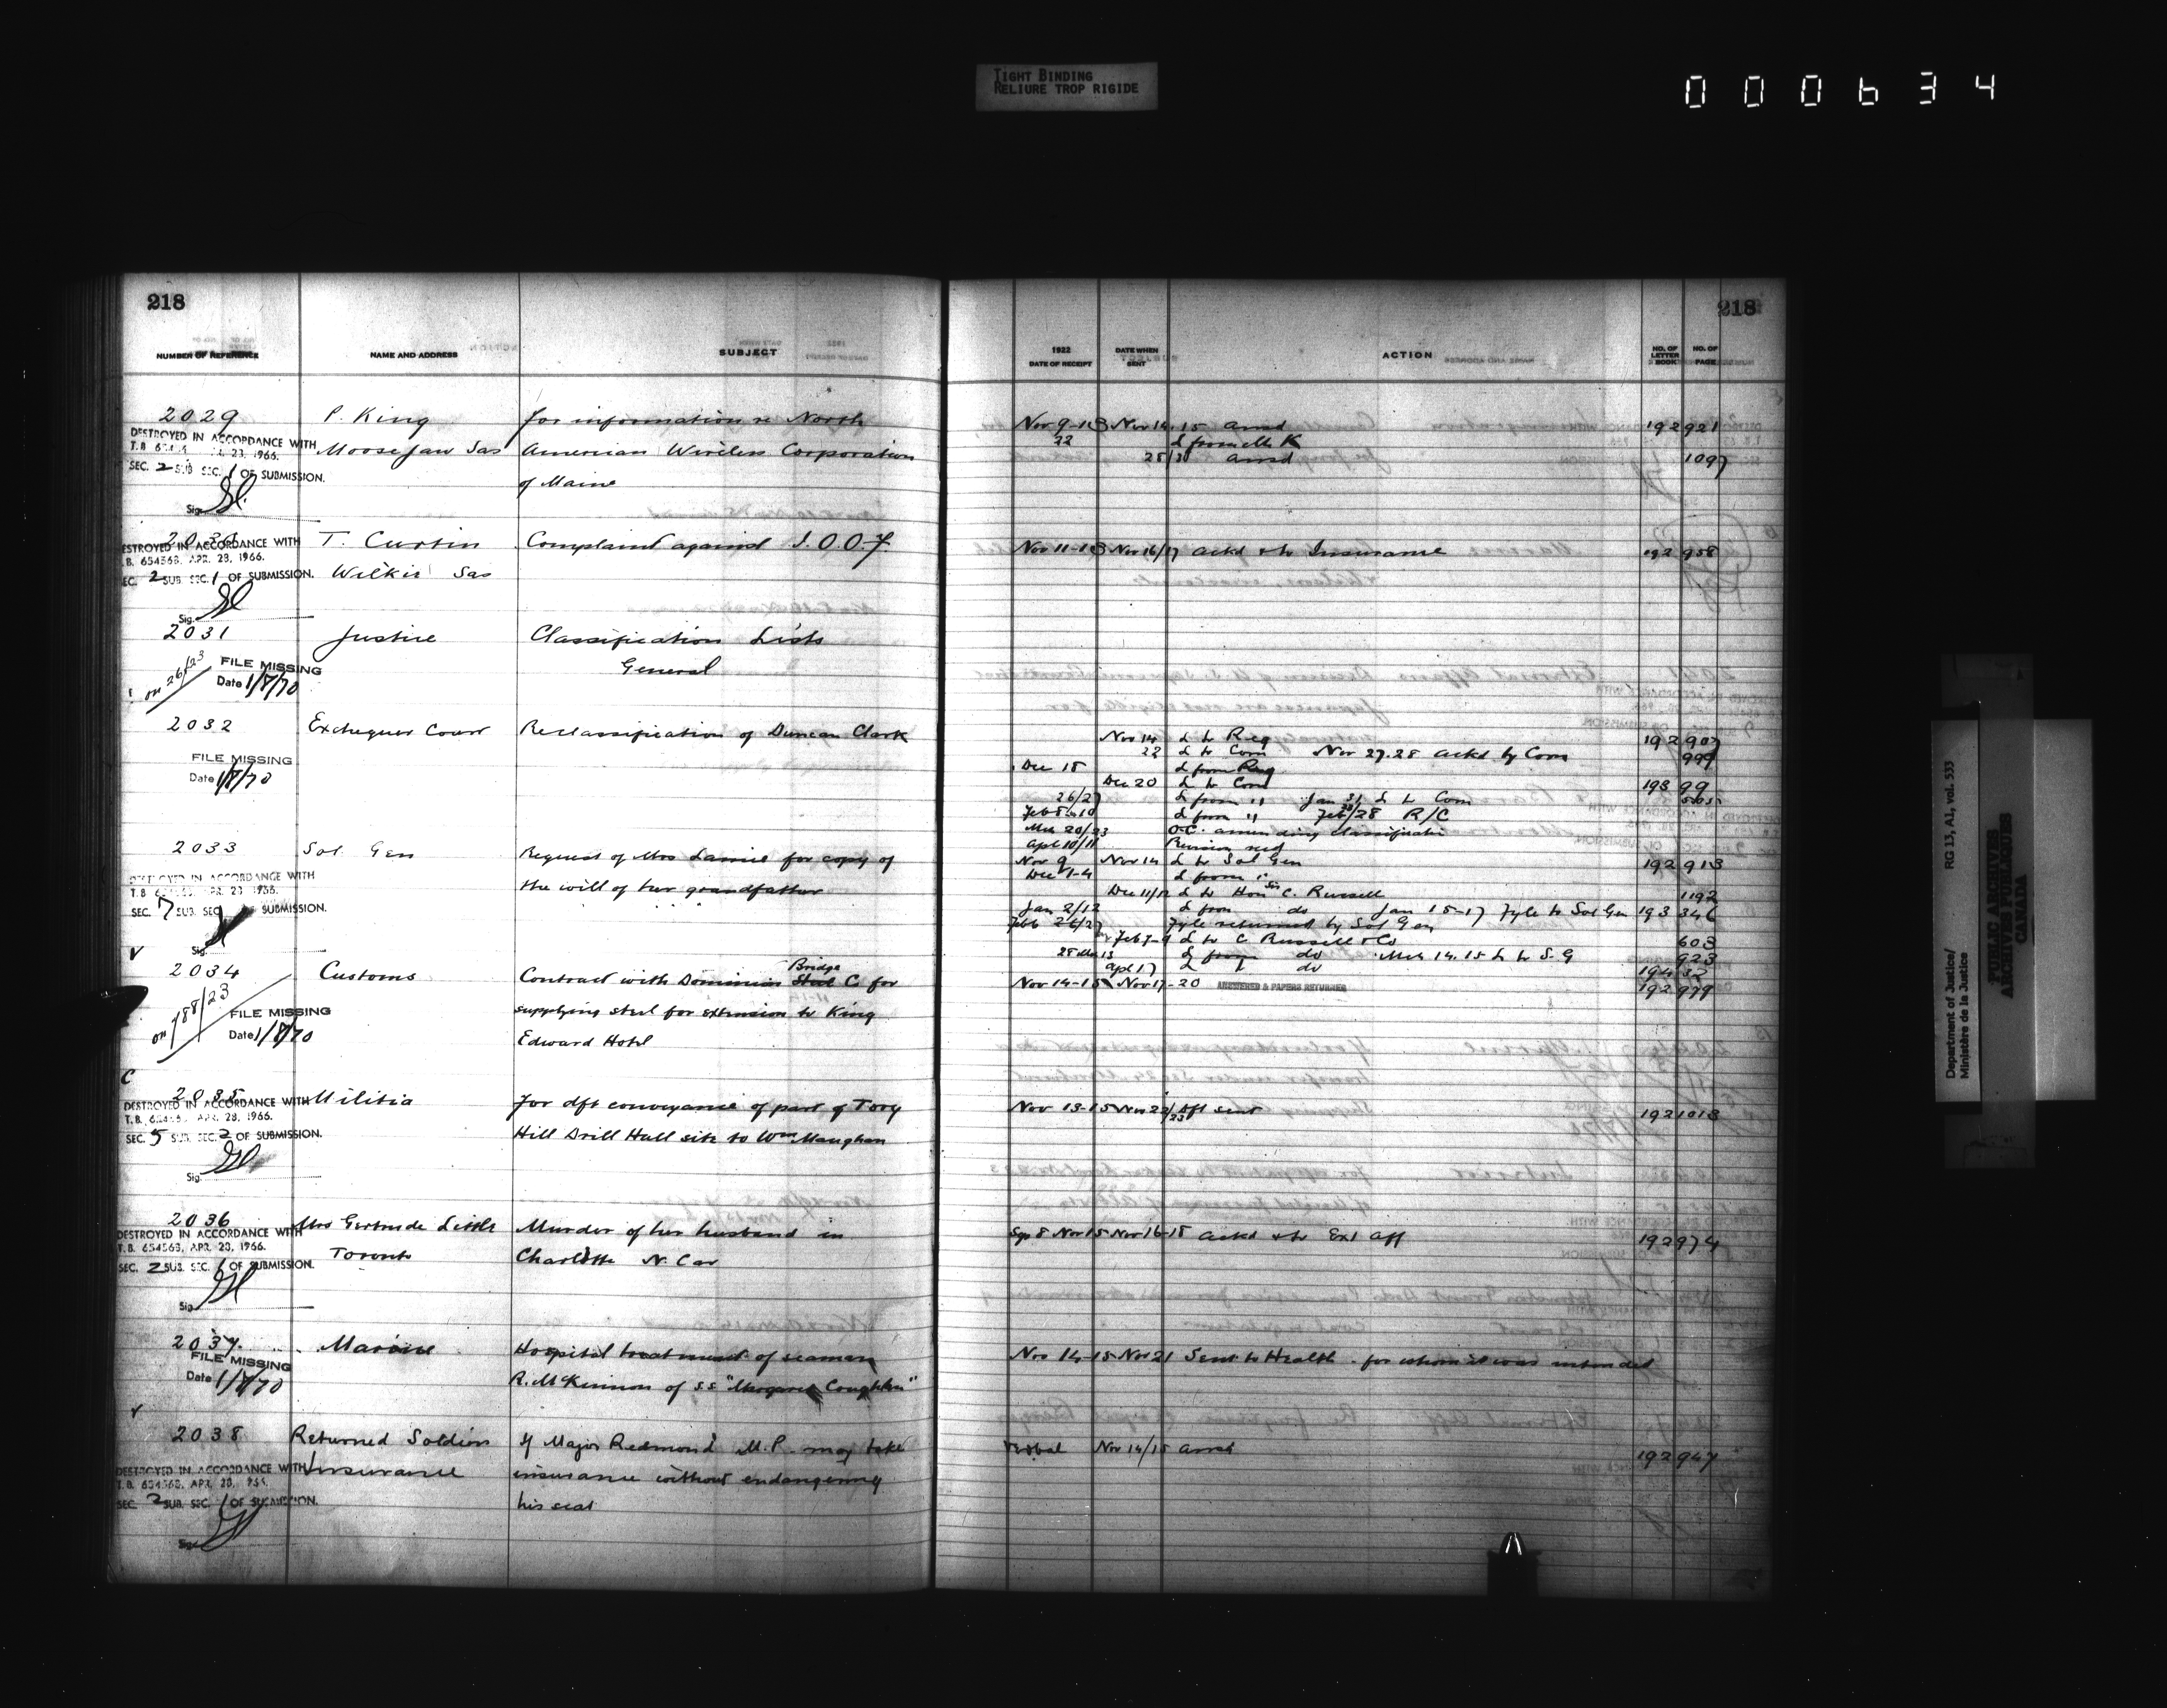 TIGHT BINDING
RELIURE TROP RIGIDE
000634
218
218
NUMBER OF REFERENCE NAME AND ADDRESS SUBJECT
1922
DATE OF RECEIPT DATE WHEN SENT ACTION NO. OF LETTER BOOK NO. OF PAGE
2029 P. King for information re North
Moose Jaw Sas American Wireless Corporation
of Maine
DESTROYED IN ACCORDANCE WITH
APR. 23, 1966.
SEC. 2 SUB SEC. 1 OF SUBMISSION.
Sig.
Nov 9-13 Nov 14.15 ansd 192 921
22 L from Mr K
28/30 ansd 1097
2030 T. Curtin Complaint against I.O.O.F.
Wilkie Sas
DESTROYED IN ACCORDANCE WITH
T.B. 654563, APR. 23, 1966.
SEC. 2 SUB SEC. 1 OF SUBMISSION.
Sig.
Nov 11-13 Nov 16/17 ackd & to Insurance 192 958
2031 Justice Classification Lists
General
on 26/23
FILE MISSING
Date 1/8/70
2032 Exchequer Court Reclassification of Duncan Clark
FILE MISSING
Date 1/8/70
Nov 14 L to Reg 192 907
22 L to Com Nov 27.28 ackd by Com 999
Dec 18 L from Reg
Dec 20 L to Com 193 99
26/27 L from " Jan 31 L to Com
L from " Feb /28 R/C
Mch 20/23 O.C. amending classification
Apl 10/11 Revision recd
2033 Sol. Gen Request of Mrs Lamie for copy of
the will of her grandfather
DESTROYED IN ACCORDANCE WITH
T.B. APR. 23 1966.
SEC. 7 SUB SEC SUBMISSION.
Sig.
Nov 9 Nov 14 L to Sol Gen 192 913
Dec 1-4 L from "
Dec 11/12 L to Hon C. Russell 1192
Jan 2/12 L from do Jan 15-17 Fyle to Sol Gen 193 346
Feb 26/27 Fyle returned by Sol Gen
Feb 7-9 L to C Russell & Co 603
L from do Mch 14.15 L to S.G 923
Apl 17 L do 194 32
2034 Customs Contract with Dominion Bridge Co for
supplying steel for extension to King
Edward Hotel
on 788/23
FILE MISSING
Date 1/8/70
Nov 14-15 Nov 17-20 ANSWERED & PAPERS RETURNED 192 979
2035 Militia For dft conveyance of part of Tory
Hill Drill Hall site to Wm Maughan
DESTROYED IN ACCORDANCE WITH
T.B. APR. 23, 1966.
SEC. 5 SUB. SEC. 2 OF SUBMISSION.
Sig.
Nov 13-15 Nov 22/23 Dft sent 192 1013
2036 Mrs Gertrude Little Murder of her husband in
Toronto Charlotte N. Car
DESTROYED IN ACCORDANCE WITH
T.B. 654563, APR. 23, 1966.
SEC. 2 SUB. SEC. 1 OF SUBMISSION.
Sig.
Sep 8 Nov 15 Nov 16-18 ackd & to Ext Aff 192 974
2037 Marine Hospital treatment of seaman
R. McKinnon of S.S "Margaret Coughlin"
FILE MISSING
Date 1/8/70
Nov 14-15 Nov 21 Sent to Health for whom it was intended
2038 Returned Soldiers If Major Redmond M.P. may take
Insurance insurance without endangering
his seat
DESTROYED IN ACCORDANCE WITH
T.B. 654563, APR. 23, 1966.
SEC. 2 SUB. SEC. 1 OF SUBMISSION.
Sig.
Verbal Nov 14/15 ansd 192 947
Department of Justice/ RG 13, A1, vol. 533
Ministère de la Justice
PUBLIC ARCHIVES
ARCHIVES PUBLIQUES
CANADA